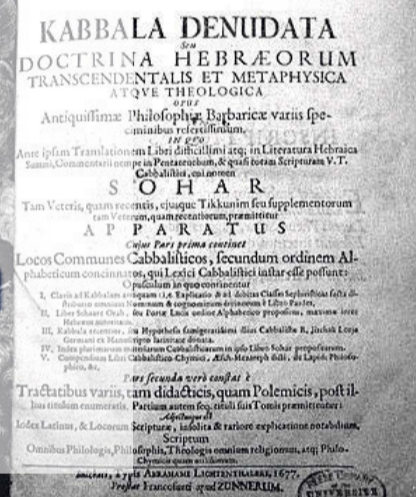 KABBALA DENUDATA
Seu
DOCTRINA HEBRÆORUM
TRANSCENDENTALIS ET METAPHYSICA
ATQVE THEOLOGICA
OPUS
Antiquissimæ Philosophiæ Barbaricæ variis spe-
ciminibus refertissimum,
IN QUO
Ante ipsam Translationem Libri difficillimi atq; in Literatura Hebraica
Summi, Commentarii nempe in Pentateuchum, & quasi totam Scripturam V. T.
Cabbalistici, cui nomen
SOHAR
Tam Veteris, quam recentis, ejusque Tikkunim seu supplementorum
tam Veterum, quam recentiorum, præmittitur
APPARATUS
Cujus Pars prima continet
Locos Communes Cabbalisticos, secundum ordinem Al-
phabeticum concinnatos, qui Lexici Cabbalistici instar esse possunt:
Opusculum in quo continentur
I, Clavis ad Kabbalam antiquam: i.e. Explicatio & ad debitas Classes Sephiristicas facta di-
II, Liber Schaare Orah, seu Portæ Lucis ordine Alphabetico propositus, maxime inter
Hebræos
III, Kabbala recentior, seu Hypothesis famigeratissimi illius Cabbalistæ R. Jizchak Lorja
Germani ex Manuscripto latinitate donata.
IV, Index plurimarum materiarum Cabbalisticarum in ipso Libro Sohar propositarum.
V, Compendium Libri Cabbalistico-Chymici, Æsch-Mezareph dicti, de Lapide Philoso-
phico, &c.
Pars secunda verò constat è
Tractatibus variis, tam didacticis, quam Polemicis, post il-
lius titulum enumeratis. Partium autem seq. tituli suis Tomis præmittentur:
Adjectusque est
Index Latinus, & Locorum Scripturæ, insolita & rariore explicatione notabilium,
Scriptum
Omnibus Philologis, Philosophis, Theologis omnium religionum, atq; Philo-
Chymicis quam utilissimum.
Sulzbaci, Typis ABRAHAMI LICHTENTHALERI, 1677.
Prostat Francofurti apud ZUNNERUM.